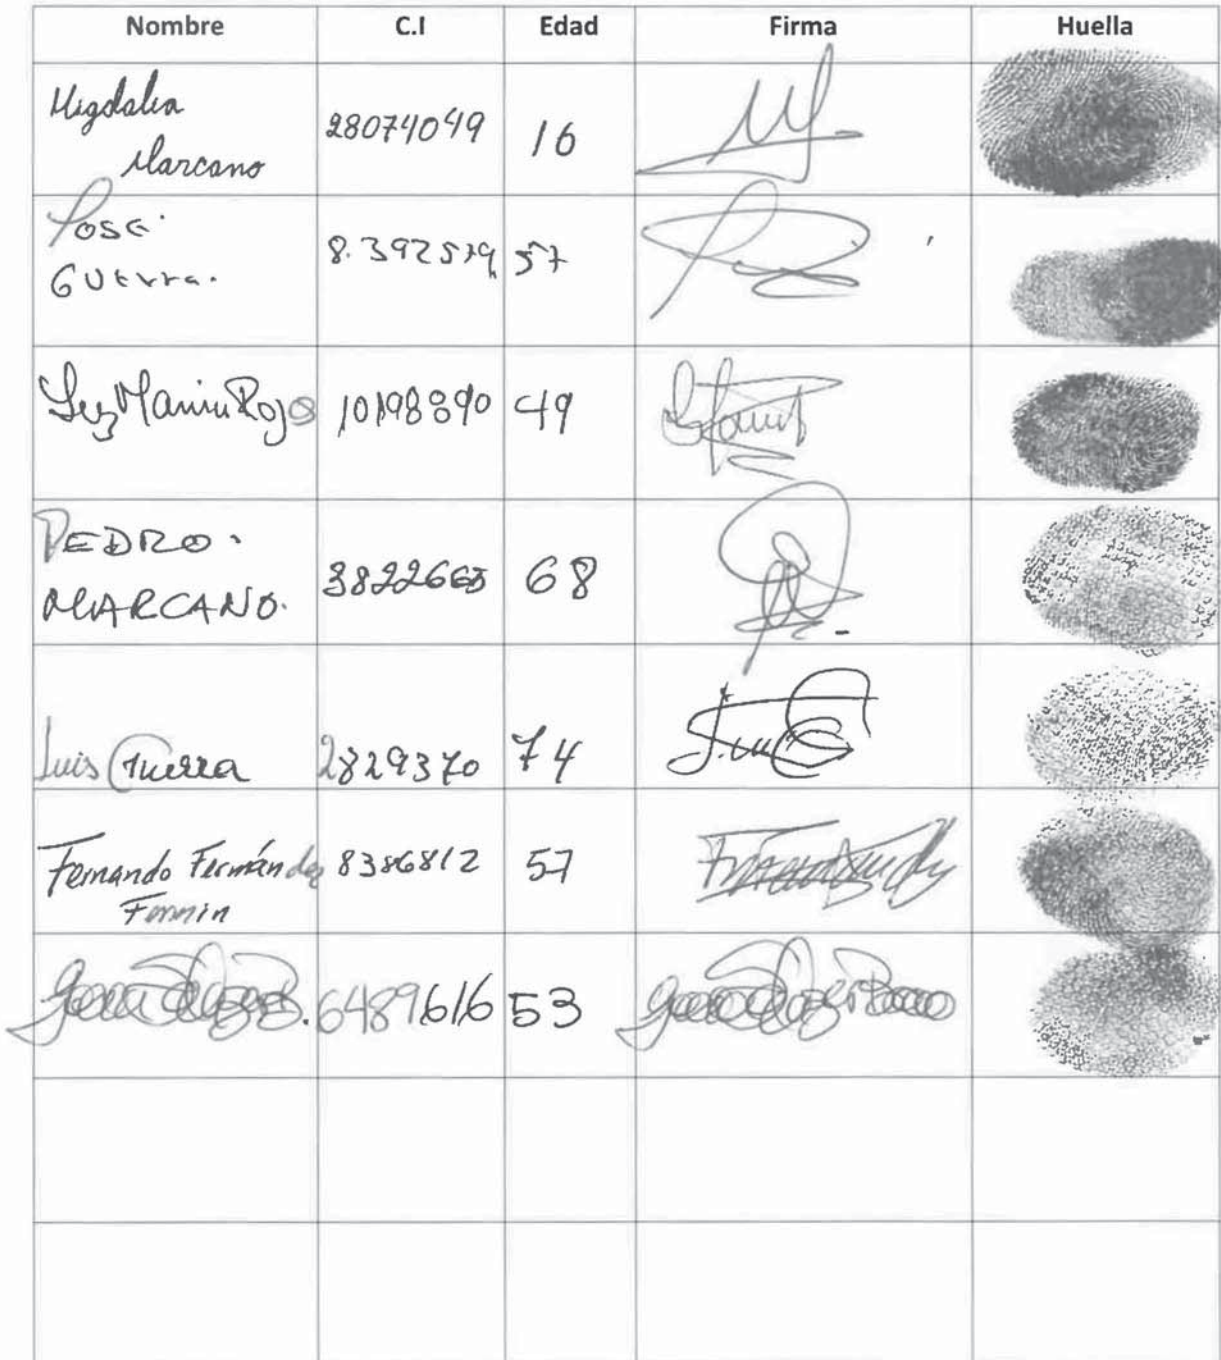 Nombre C.I Edad Firma Huella
Migdalia
Marcano 28074049 16
Jose
Guerra. 8.392579 57
Luz Marin Rojas 10198890 49
PEDRO.
MARCANO. 3822665 68
Luis Guerra 2829370 74
Fernando Fernández 8386812 57
Fermin
6489616 53